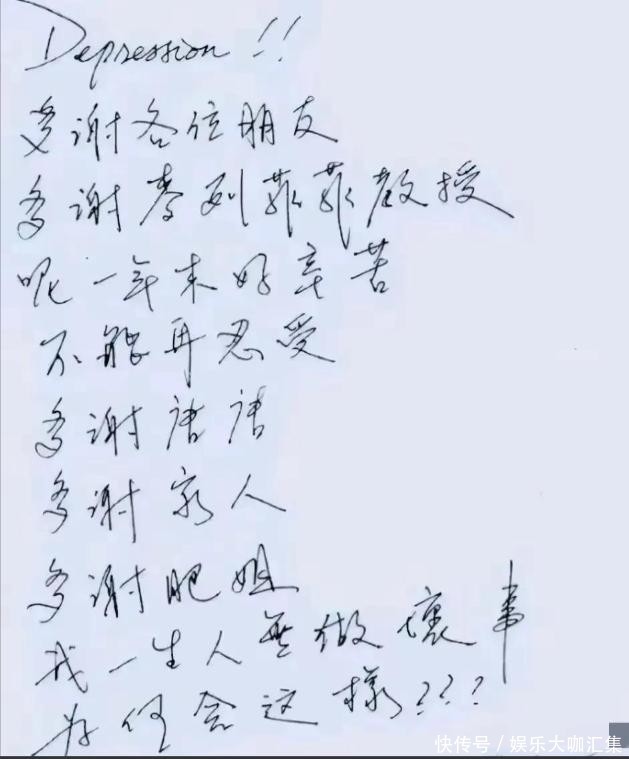 Depression!!
多谢各位朋友
多谢麥列菲菲教授
呢一年来好辛苦
不能再忍受
多谢唐唐
多谢家人
多谢肥姐
我一生人無做壞事
为何会这樣???
快传号/娱乐大咖汇集